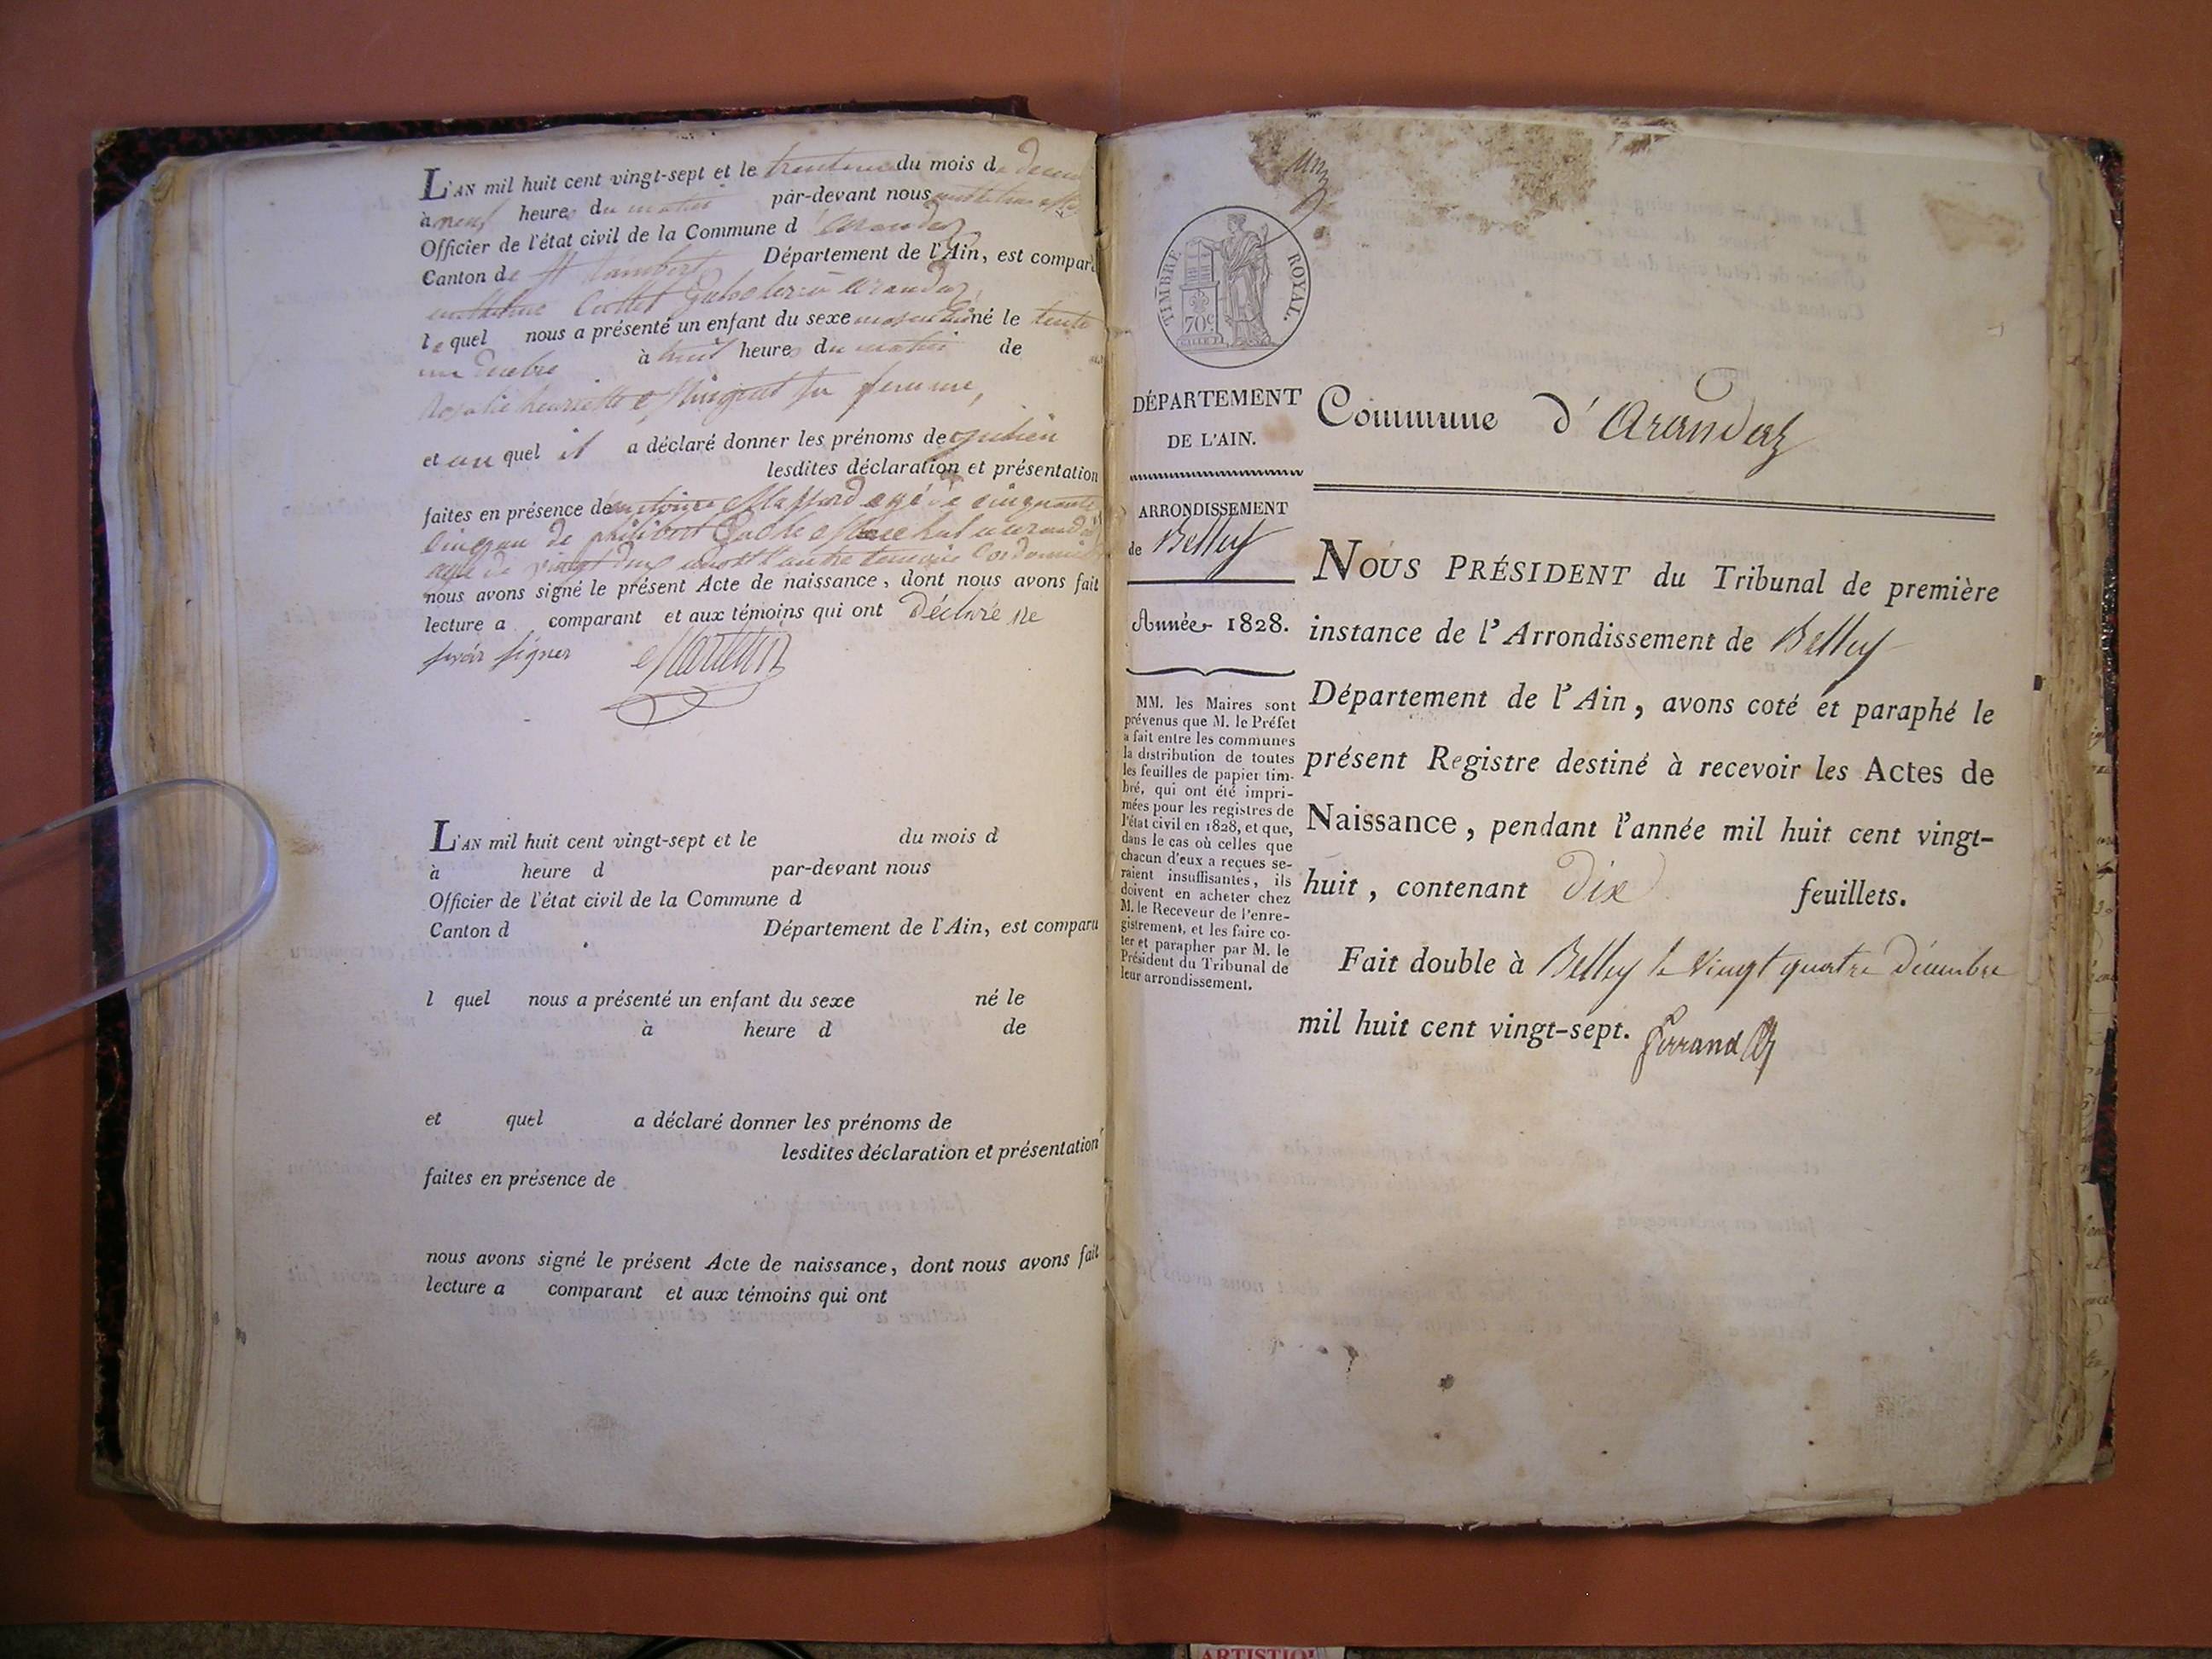 L'AN mil huit cent vingt-sept et le du mois de
à neuf heures du matin par-devant nous
Officier de l'état civil de la Commune d'arandaz
Canton de St Rambert Département de l'Ain, est comparu
arandaz,
le quel nous a présenté un enfant du sexe masculin né le
à huit heures du matin de
sa femme,
et au quel il a déclaré donner les prénoms de
lesdites déclaration et présentation
faites en présence de antoine agé de cinquante
cinq an de philibert
agé de vingt deux
nous avons signé le présent Acte de naissance, dont nous avons fait
lecture a comparant et aux témoins qui ont déclaré ne
savoir signer
L'AN mil huit cent vingt-sept et le du mois d
à heure d par-devant nous
Officier de l'état civil de la Commune d
Canton d Département de l'Ain, est comparu
l quel nous a présenté un enfant du sexe né le
à heure d de
et quel a déclaré donner les prénoms de
lesdites déclaration et présentation
faites en présence de
nous avons signé le présent Acte de naissance, dont nous avons fait
lecture a comparant et aux témoins qui ont
TIMBRE ROYAL.
70c
DÉPARTEMENT
DE L'AIN.
ARRONDISSEMENT
de Belley
Année 1828.
MM. les Maires sont
prévenus que M. le Préfet
a fait entre les communes
la distribution de toutes
les feuilles de papier tim-
bré, qui ont été impri-
mées pour les registres de
l'état civil en 1828, et que,
dans le cas où celles que
chacun d'eux a reçues se-
raient insuffisantes, ils
doivent en acheter chez
M. le Receveur de l'enre-
gistrement, et les faire co-
ter et parapher par M. le
Président du Tribunal de
leur arrondissement.
Commune d'Arandaz
NOUS PRÉSIDENT du Tribunal de première
instance de l'Arrondissement de Belley
Département de l'Ain, avons coté et paraphé le
présent Registre destiné à recevoir les Actes de
Naissance, pendant l'année mil huit cent vingt-
huit, contenant dix feuillets.
Fait double à Belley le Vingt quatre décembre
mil huit cent vingt-sept.
ARTISTIQ